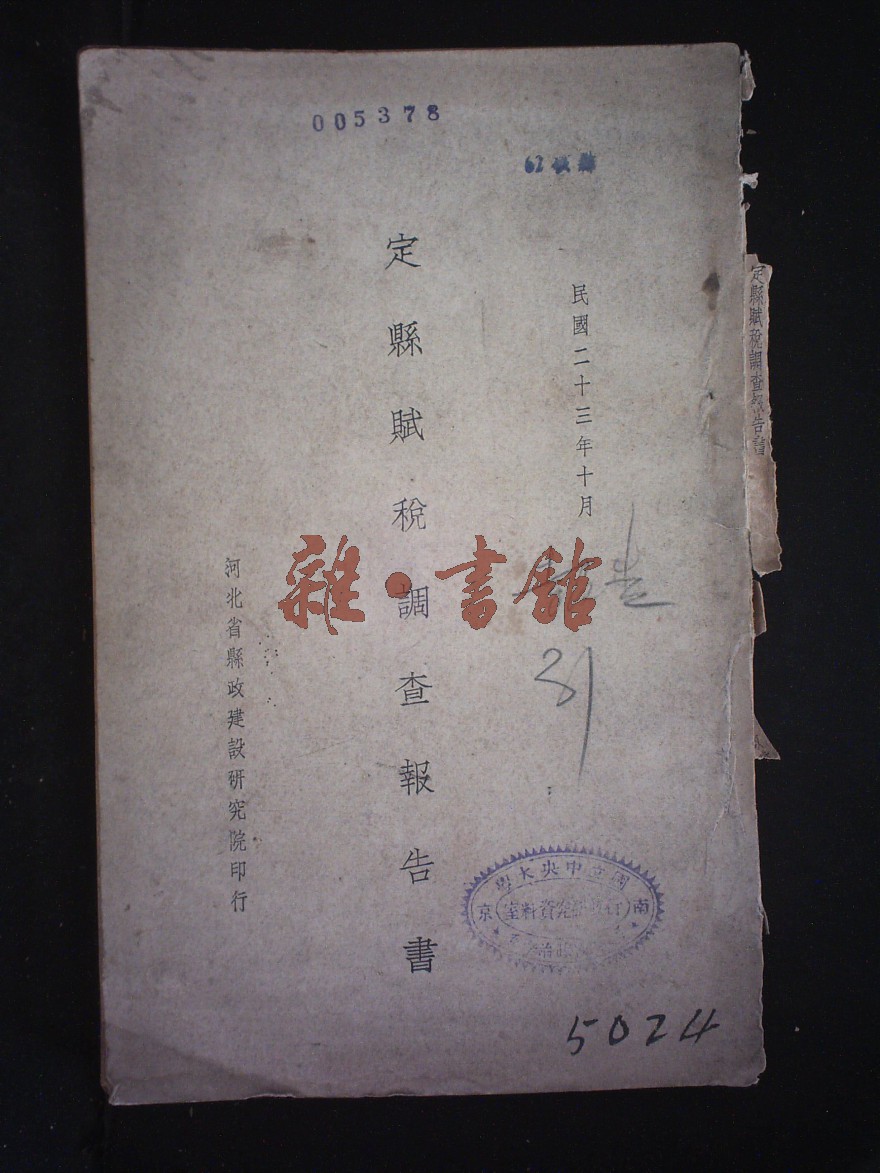 005378
民國二十三年十月
定縣賦稅調查報告書
河北省縣政建設研究院印行
定縣賦稅調查報告書
雜·書館
31
國立中央大學
南京
究資料室
5024